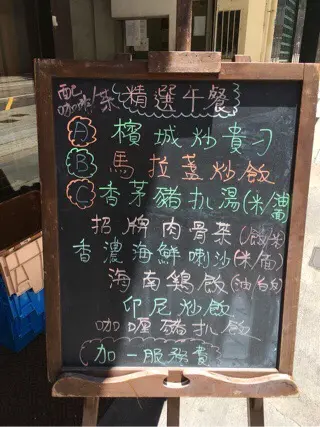 配
咖啡/茶 精選午餐
A 檳城炒貴刁
B 馬拉盞炒飯
C 香茅豬扒湯(米/油麵)
招牌肉骨茶(飯/米)
香濃海鮮喇沙(米/麵)
海南鷄飯(油/白)
印尼炒飯
咖喱豬扒飯
加一服務費